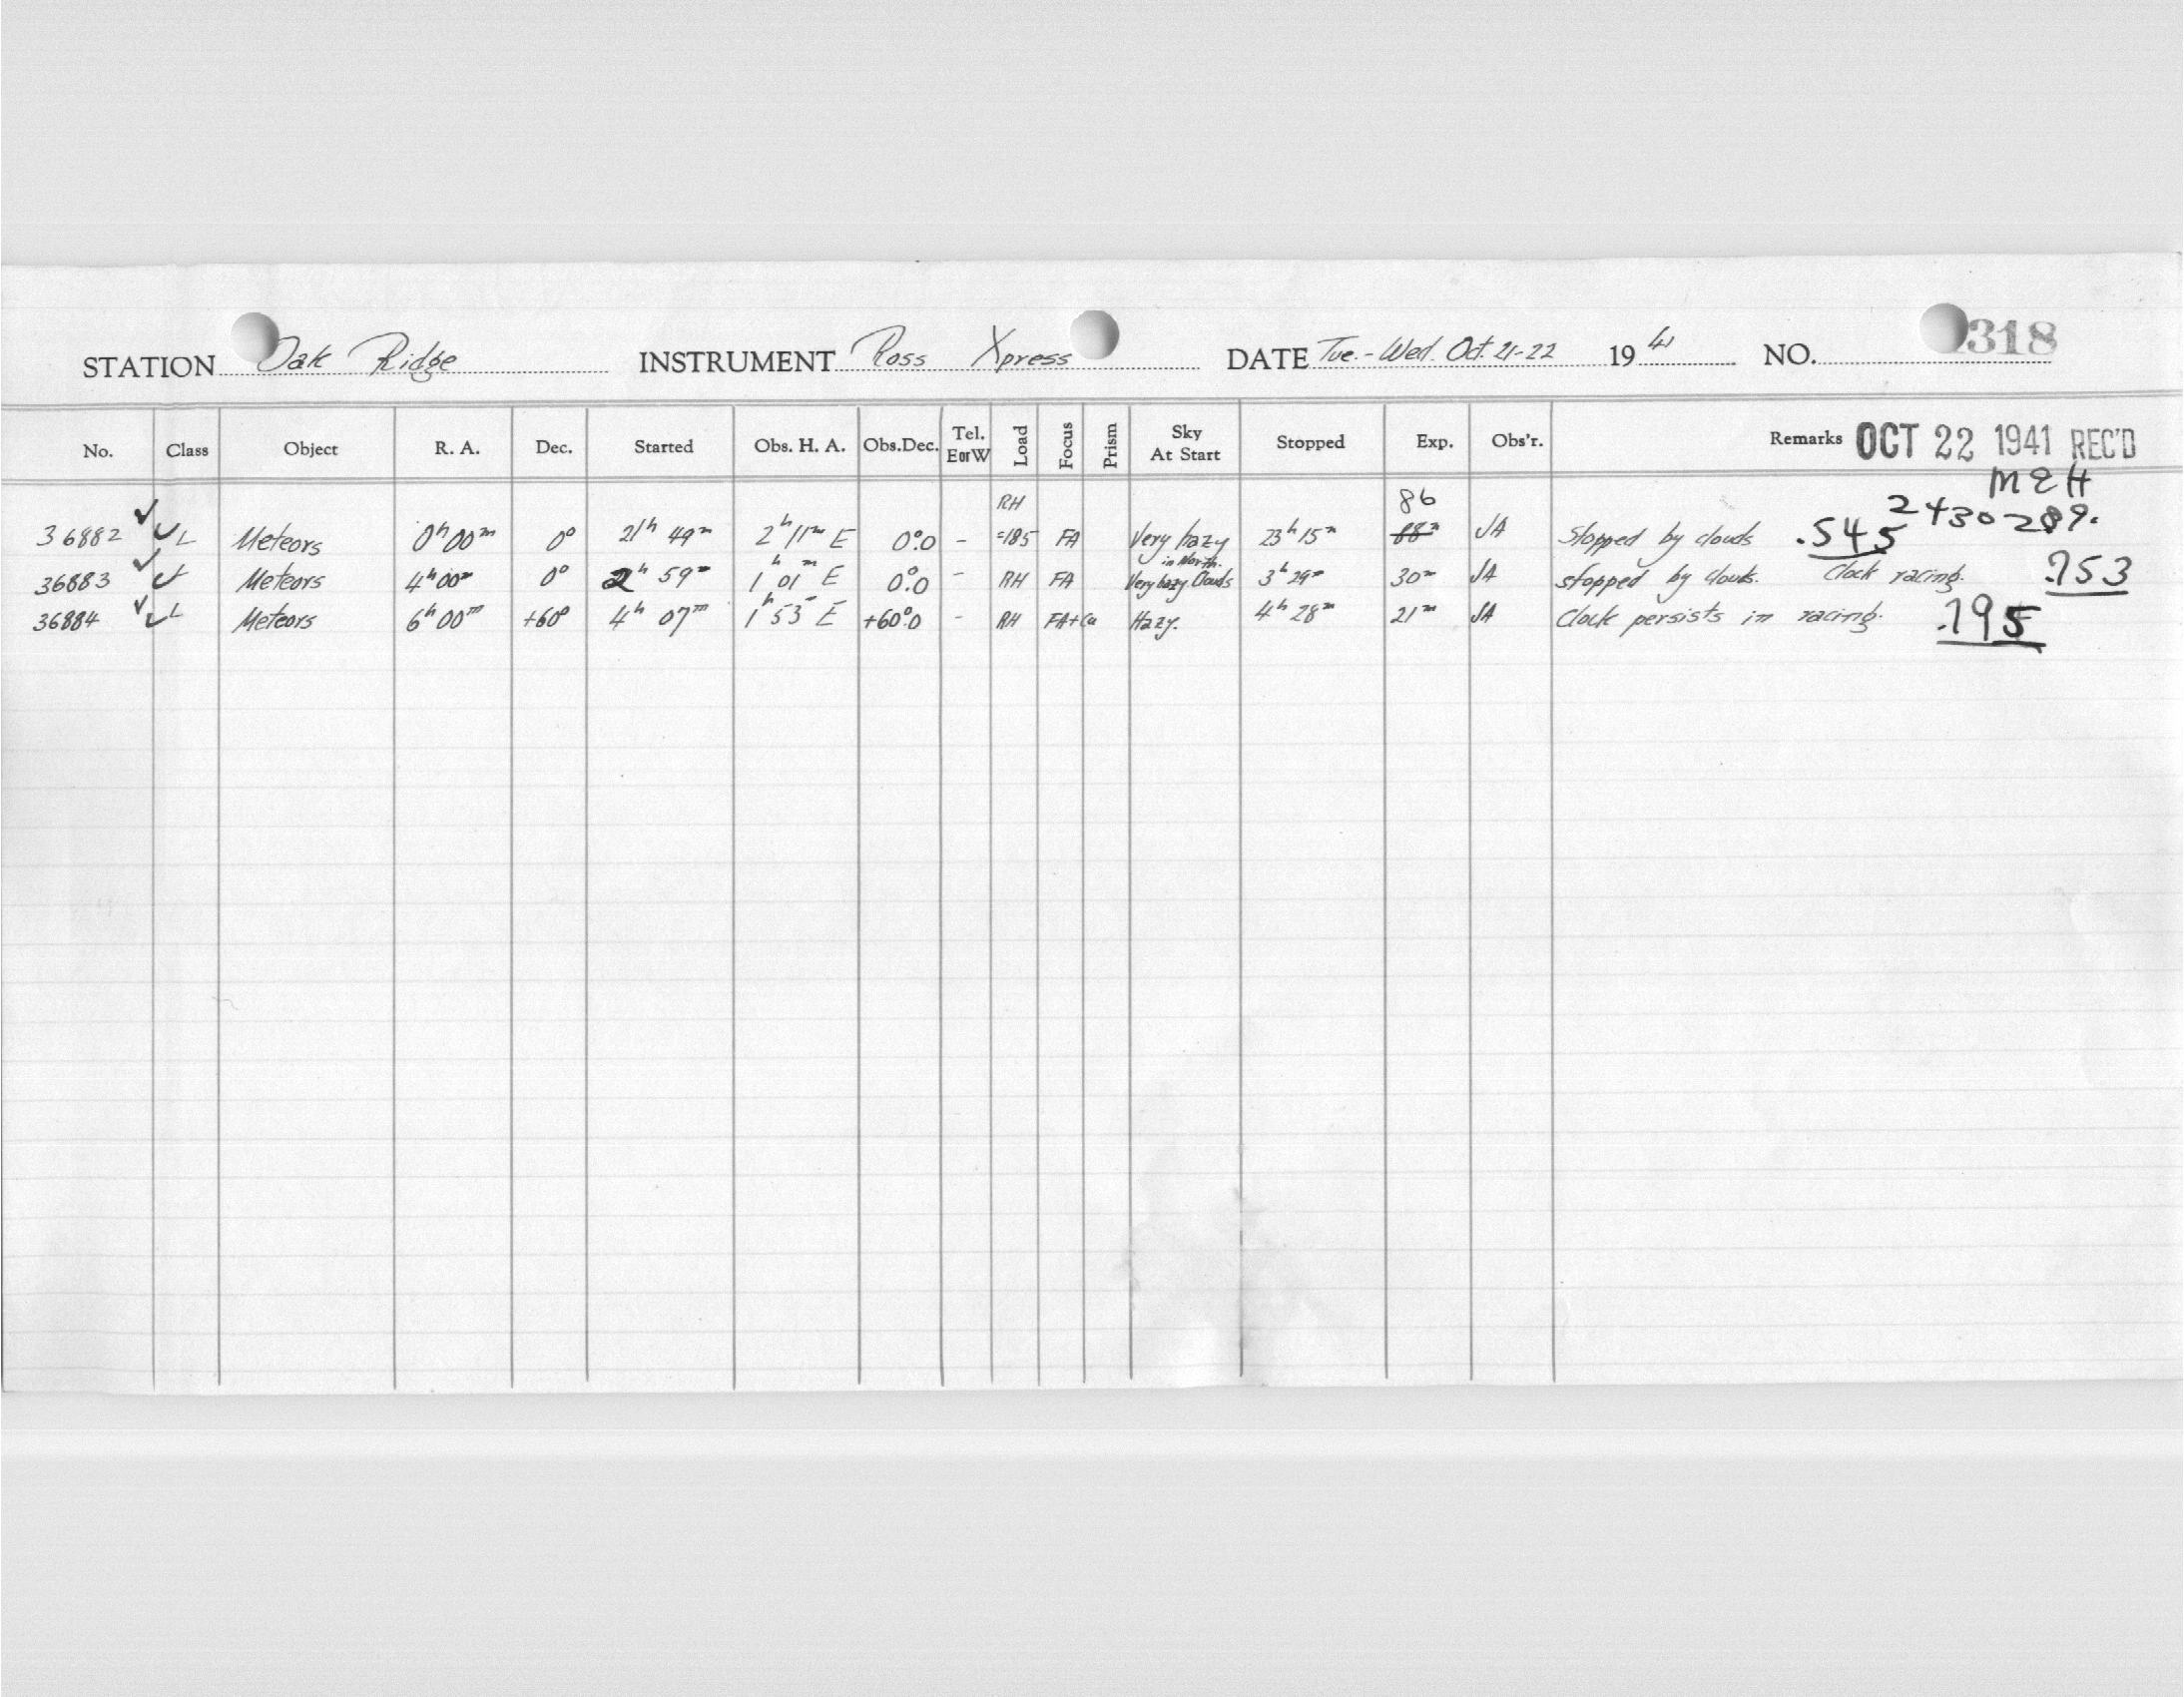 STATION Oak Ridge INSTRUMENT Ross Xpress DATE Tue.-Wed. Oct. 21-22 1941 NO. 318
No. Class Object R. A. Dec. Started Obs. H. A. Obs.Dec. Tel. E or W Load Focus Prism Sky At Start Stopped Exp. Obs'r. Remarks OCT 22 1941 REC'D
MEH
RH 86 2430289.
36882 ✓ ✓ L Meteors 0h 00m 0° 21h 49m 2h 11m E 0°.0 - =185 FA Very hazy 23h 15m 88m JA Stopped by clouds .545
in North.
36883 ✓ ✓ Meteors 4h 00m 0° 2h 59m 1h 01m E 0°.0 - RH FA Very hazy. Clouds 3h 29m 30m JA stopped by clouds. Clock racing. .753
36884 ✓ ✓ L Meteors 6h 00m +60° 4h 07m 1h 53m E +60°.0 - RH FA+Cu Hazy. 4h 28m 21m JA Clock persists in racing. .795